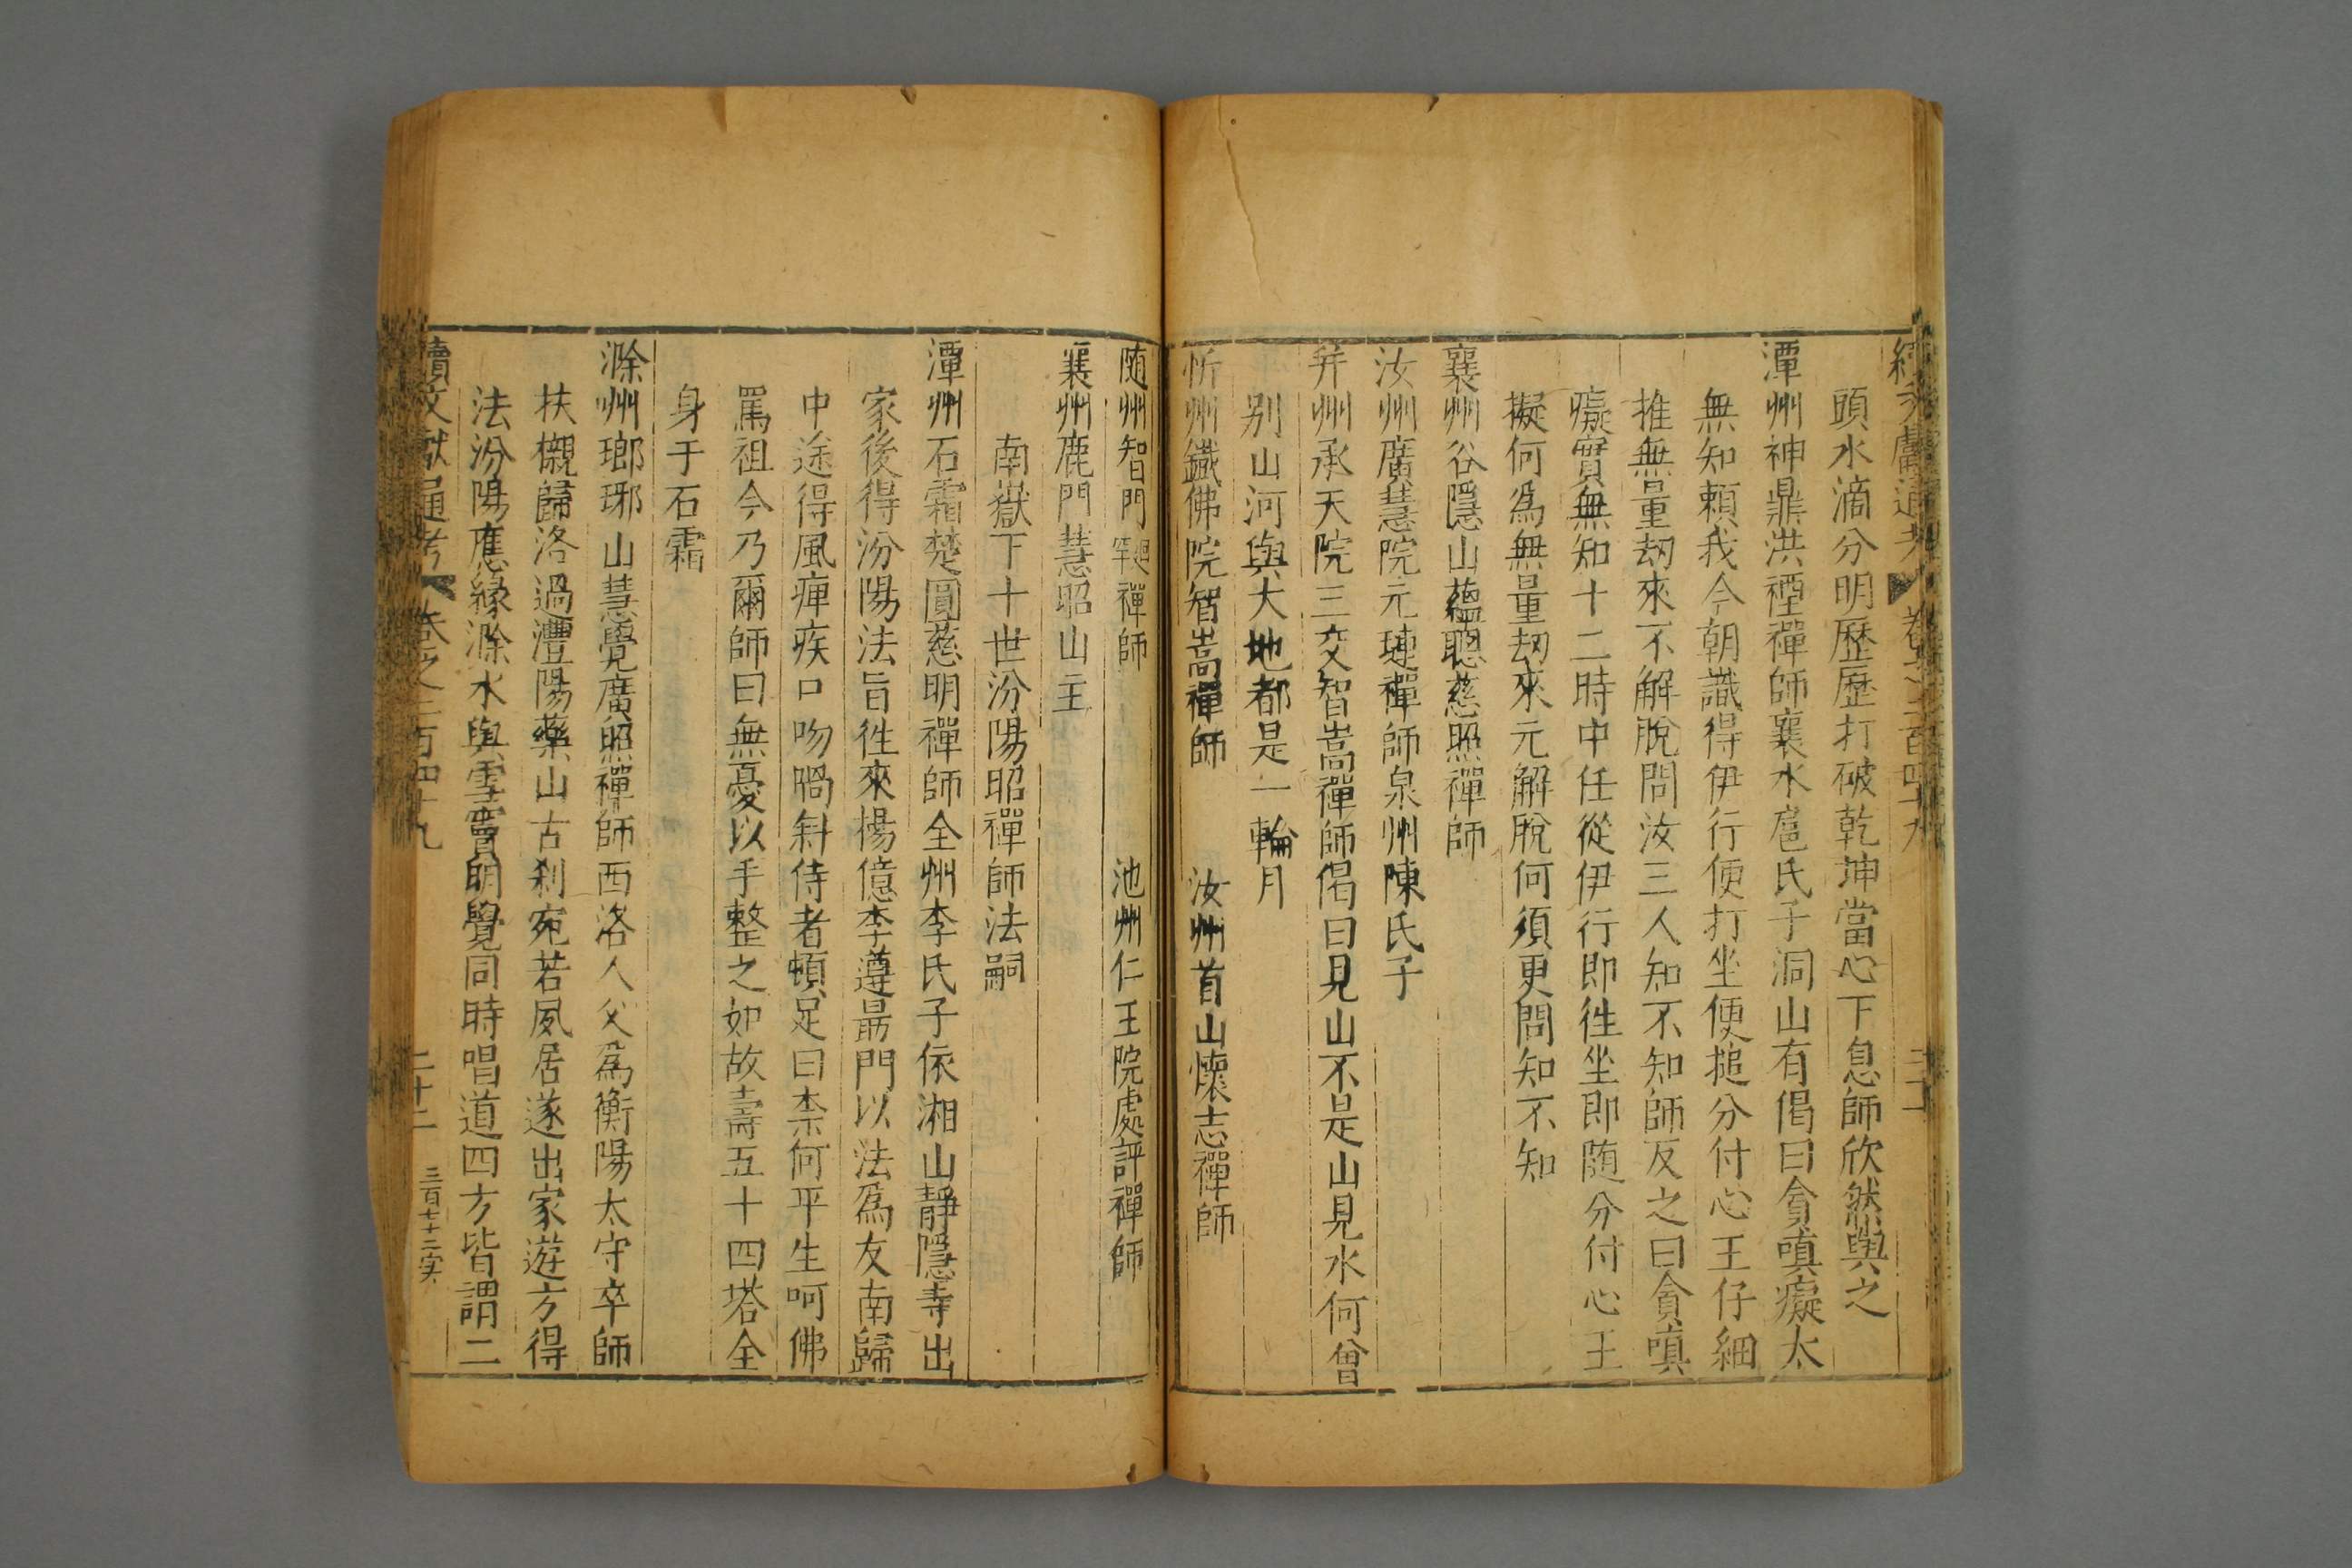 續文獻通考 卷之二百四十九
頭水滴分明歷歷打破乾坤當心下息師欣然與之
潭州神鼎洪諲禪師襄水扈氏子洞山有偈曰貪嗔癡太
無知賴我今朝識得伊行便打坐便搥分付心王仔細
推無量劫來不解脫問汝三人知不知師反之曰貪嗔
癡實無知十二時中任從伊行即徃坐即随分付心王
擬何爲無量劫來元解脫何須更問知不知
襄州谷隱山蘊聰慈照禪師
汝州廣慧院元璉禪師泉州陳氏子
并州承天院三交智嵩禪師偈曰見山不是山見水何曾
別山河與大地都是一輪月
忻州鐵佛院智嵩禪師 汝州首山懷志禪師
随州智門罕逈禪師 池州仁王院處評禪師
襄州鹿門慧昭山主
南嶽下十世汾陽昭禪師法嗣
潭州石霜楚圓慈明禪師全州李氏子依湘山靜隱寺出
家後得汾陽法旨徃來楊億李遵最門以法爲友南歸
中途得風痺疾口吻喎斜侍者頓足曰柰何平生呵佛
罵祖今乃爾師曰無憂以手整之如故壽五十四塔全
身于石霜
滁州瑯琊山慧覺廣照禪師西洛人父爲衡陽太守卒師
扶櫬歸洛過灃陽藥山古刹宛若夙居遂出家遊方得
法汾陽應緣滁水與雪竇明覺同時唱道四方皆謂二
續文獻通考 卷之二百四十九 二十二 三百七十二